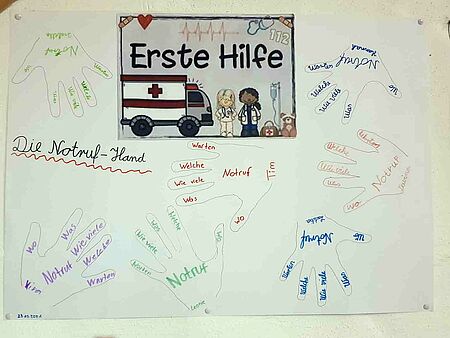 112
Erste Hilfe
Die Notruf-Hand
Notruf
Warten
Welche
Wie viele
Was
Notruf
Hannah
Warten
Welche
Wie viele
Was
Wo
Warten
Welche
Wie viele
Was
Wo
Notruf
Tim
Warten
Welche
Wie viele
Was
Wo
Notruf
Wo
Was
Wie viele
Welche
Warten
Notruf
Welche
Wie viele
Warten
Notruf
Notruf
Wo
Was
Wie viele
Welche
Warten